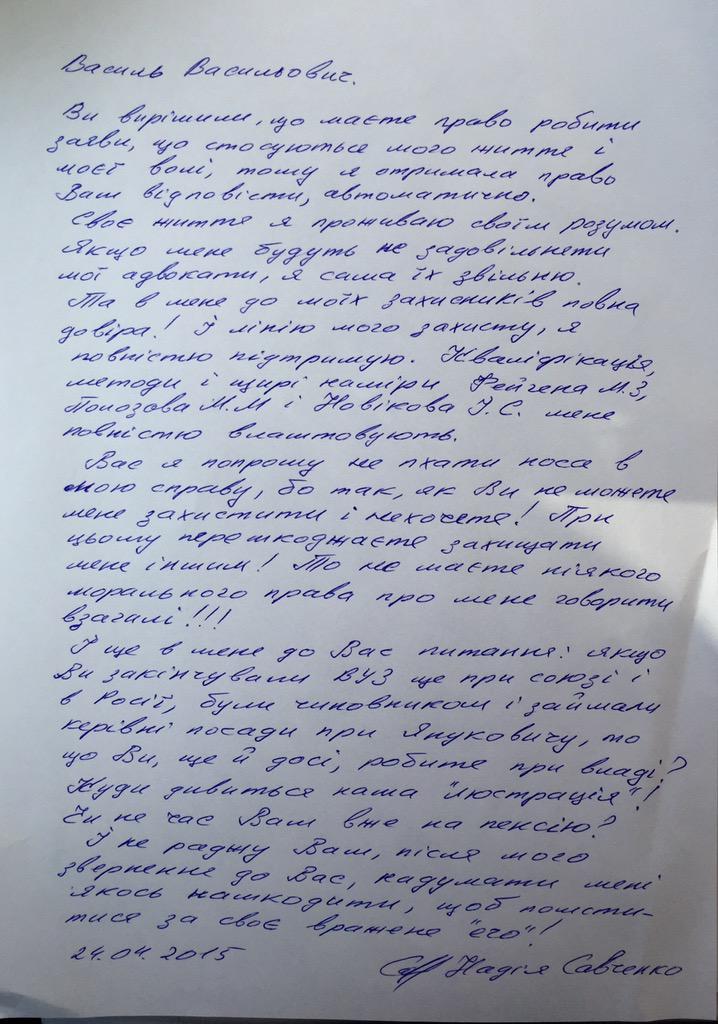 Василь Васильович.
Ви вирішили, що маєте право робити
заяви, що стосуються мого життя і
моєї волі, тому я отримала право
Вам відповісти, автоматично.
Своє життя я проживаю своїм розумом.
Якщо мене будуть не задовільнети
мої адвокати, я сама їх звільню.
Та в мене до моїх захисників повна
довіра! І лінію мого захисту, я
повністю підтримую. Кваліфікація,
методи і щирі наміри Фейгена М.З,
Полозова М.М і Новікова І.С. мене
повністю влаштовують.
Вас я попрошу не пхати носа в
мою справу, бо так, як Ви не можете
мене захистити і нехочете! При
цьому перешкоджаєте захищати
мене іншим! То не маєте ніякого
морального права про мене говорити
взагалі!!!
І ще в мене до Вас питання: якщо
Ви закінчували ВУЗ ще при союзі і
в Росії, були чиновником і займали
керівні посади при Януковичу, то
що Ви, ще й досі, робите при владі?
Куди дивиться наша "люстрація"!
Чи не час Вам вже на пенсію?
І не раджу Вам, після мого
звернення до Вас, надумати мені
якось нашкодити, щоб помсти-
тися за своє вражене "его"!
24.04.2015
Надія Савченко